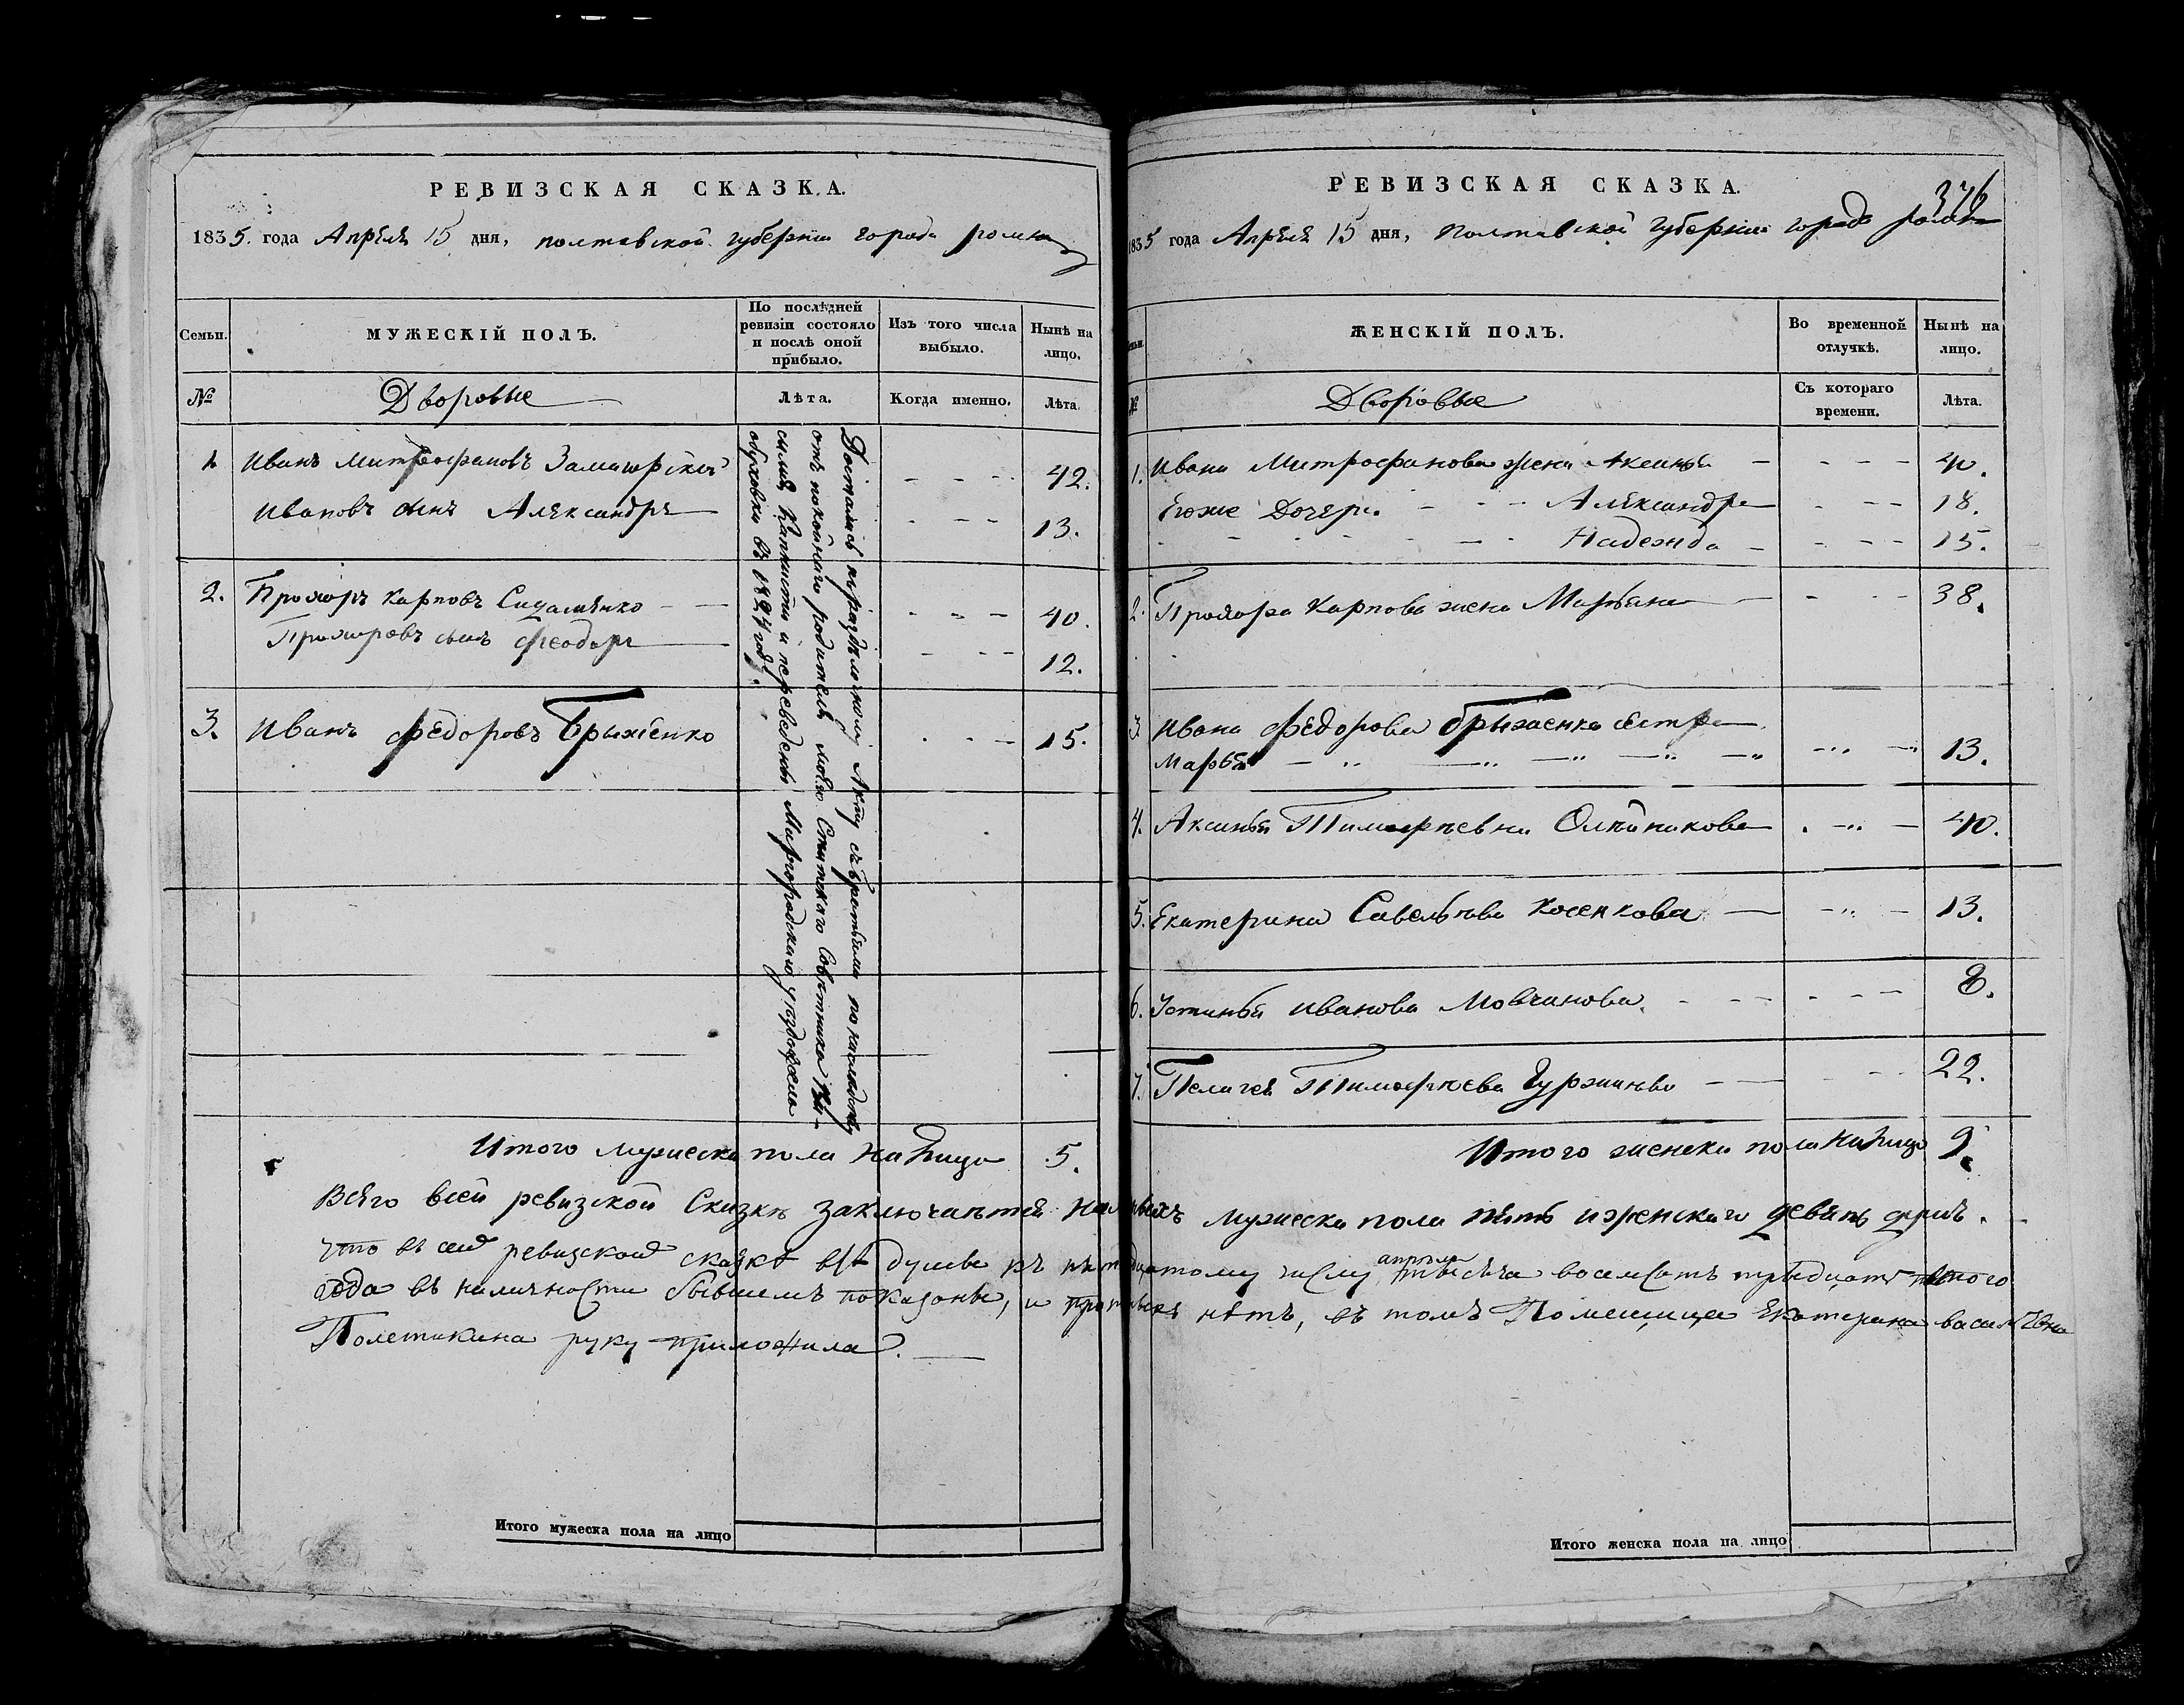 РЕВИЗСКАЯ СКАЗКА.
1835. года Апрѣля 15 дня, полтавской губерніи города ромна
Семьи.
МУЖЕСКІЙ ПОЛЪ.
По послѣдней ревизіи состояло и послѣ оной прибыло.
Изъ того числа выбыло.
Нынѣ на лицо.
№
Дворовые
Лѣта.
Когда именно.
Лѣта.
1. Иванъ Митрофановъ 42.
Ивановъ сынъ Александръ 13.
2. Прохоръ Карповъ 40.
Прохоровъ сынъ Феодоръ 12.
3. Иванъ Федоровъ Брыженко 15.
Достались по раздѣлочному Акту съ братьями по наслѣдству
отъ покойнаго родителя моего Статскаго Совѣтника Ва-
силія Капниста и переведены Миргородскаго уѣзда изъ села
обуховки въ 1824 году.
Итого мужеска пола на Лицо 5.
Всего в сей ревизской Сказкѣ заключается
что въ сей ревизской сказкѣ всѣ души къ
года въ наличности бывшемъ показаны, и
Полетикина руку приложила.
Итого мужеска пола на лицо
РЕВИЗСКАЯ СКАЗКА.
376
1835 года Апрѣля 15 дня, Полтавской Губерніи города ромна
№
ЖЕНСКІЙ ПОЛЪ.
Во временной отлучкѣ.
Нынѣ на лицо.
Дворовые
Съ котораго времени.
Лѣта.
1. Ивана Митрофанова жена Аксинья 40.
Егоже Дочери Александра 18.
Надежда 15.
2. Прохора Карпова жена Марьяна 38.
3. Ивана Федорова Брыженка сестра
Марья 13.
4. Аксинья Тимофѣевна Олѣйникова 40.
5. Екатерина Савельева Косенкова 13.
6. Устинья Иванова Мовчанова. 8.
7. Пелагея Тимофѣева Гуржиева 22.
Итого женска пола на Лицо 9.
мужеска пола пять и женскаго девять душъ.
числу апрѣля мѣсяца восемьсотъ тридцать пятого
нѣтъ, въ томъ Помещица Екатерина васильевна
Итого женска пола на лицо